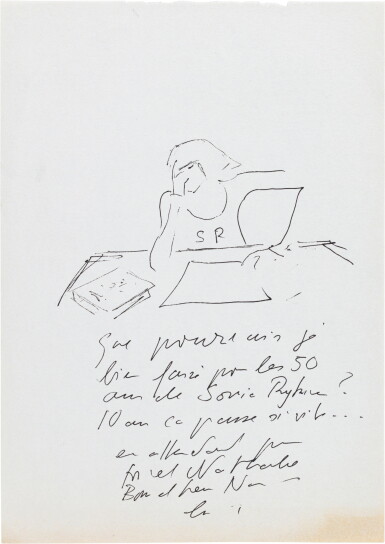 S R
Que pourrais je
bien faire pr les 50
ans de Sonia Rykiel ?
10 ans ca passe si vite...
en attendant
et Nathalie
Bon